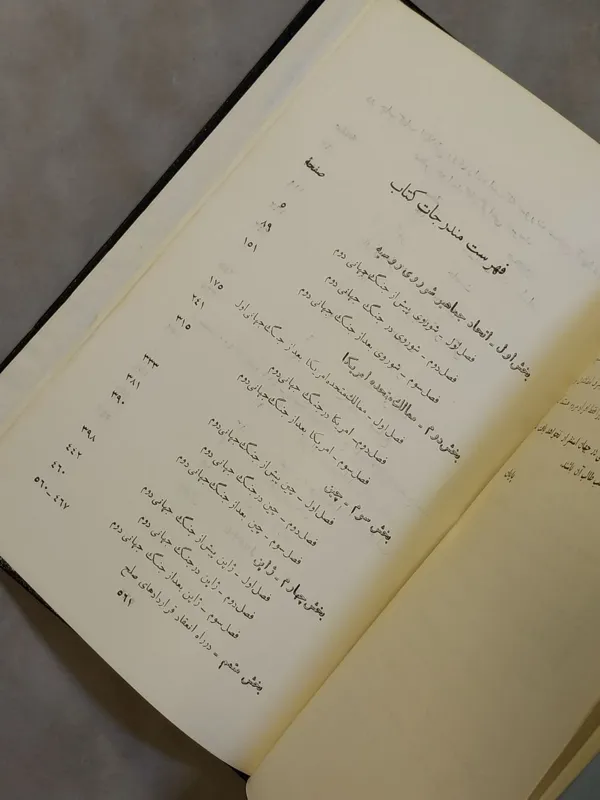 فهرست مندرجات کتاب
صفحهٔ
بخش اول ـ اتحاد جماهیر شوروی روسیه
فصل اول ـ شوروی پیش از جنگ جهانی دوم ۵
فصل دوم ـ شوروی در جنگ جهانی دوم ۸۹
فصل سوم ـ شوروی بعد از جنگ جهانی دوم ۱۵۱
بخش دوم ـ ممالک متحده امریکا
فصل اول ـ ممالک متحده امریکا بعد از جنگ جهانی اول ۱۷۵
فصل دوم ـ امریکا در جنگ جهانی دوم ۲۴۱
فصل سوم ـ امریکا بعد از جنگ جهانی دوم ۳۱۵
بخش سوم ـ چین
فصل اول ـ چین پیش از جنگ جهانی دوم ۳۳۳
فصل دوم ـ چین در جنگ جهانی دوم ۳۸۱
فصل سوم ـ چین بعد از جنگ جهانی دوم ۳۹۰
بخش چهارم ـ ژاپن
فصل اول ـ ژاپن پیش از جنگ جهانی دوم ۳۹۸
فصل دوم ـ ژاپن در جنگ جهانی دوم ۴۴۲
فصل سوم ـ ژاپن بعد از جنگ جهانی دوم ۴۶۰
بخش هشتم ـ در راه انعقاد قراردادهای صلح ۴۶۷-۵۶۰
پایان